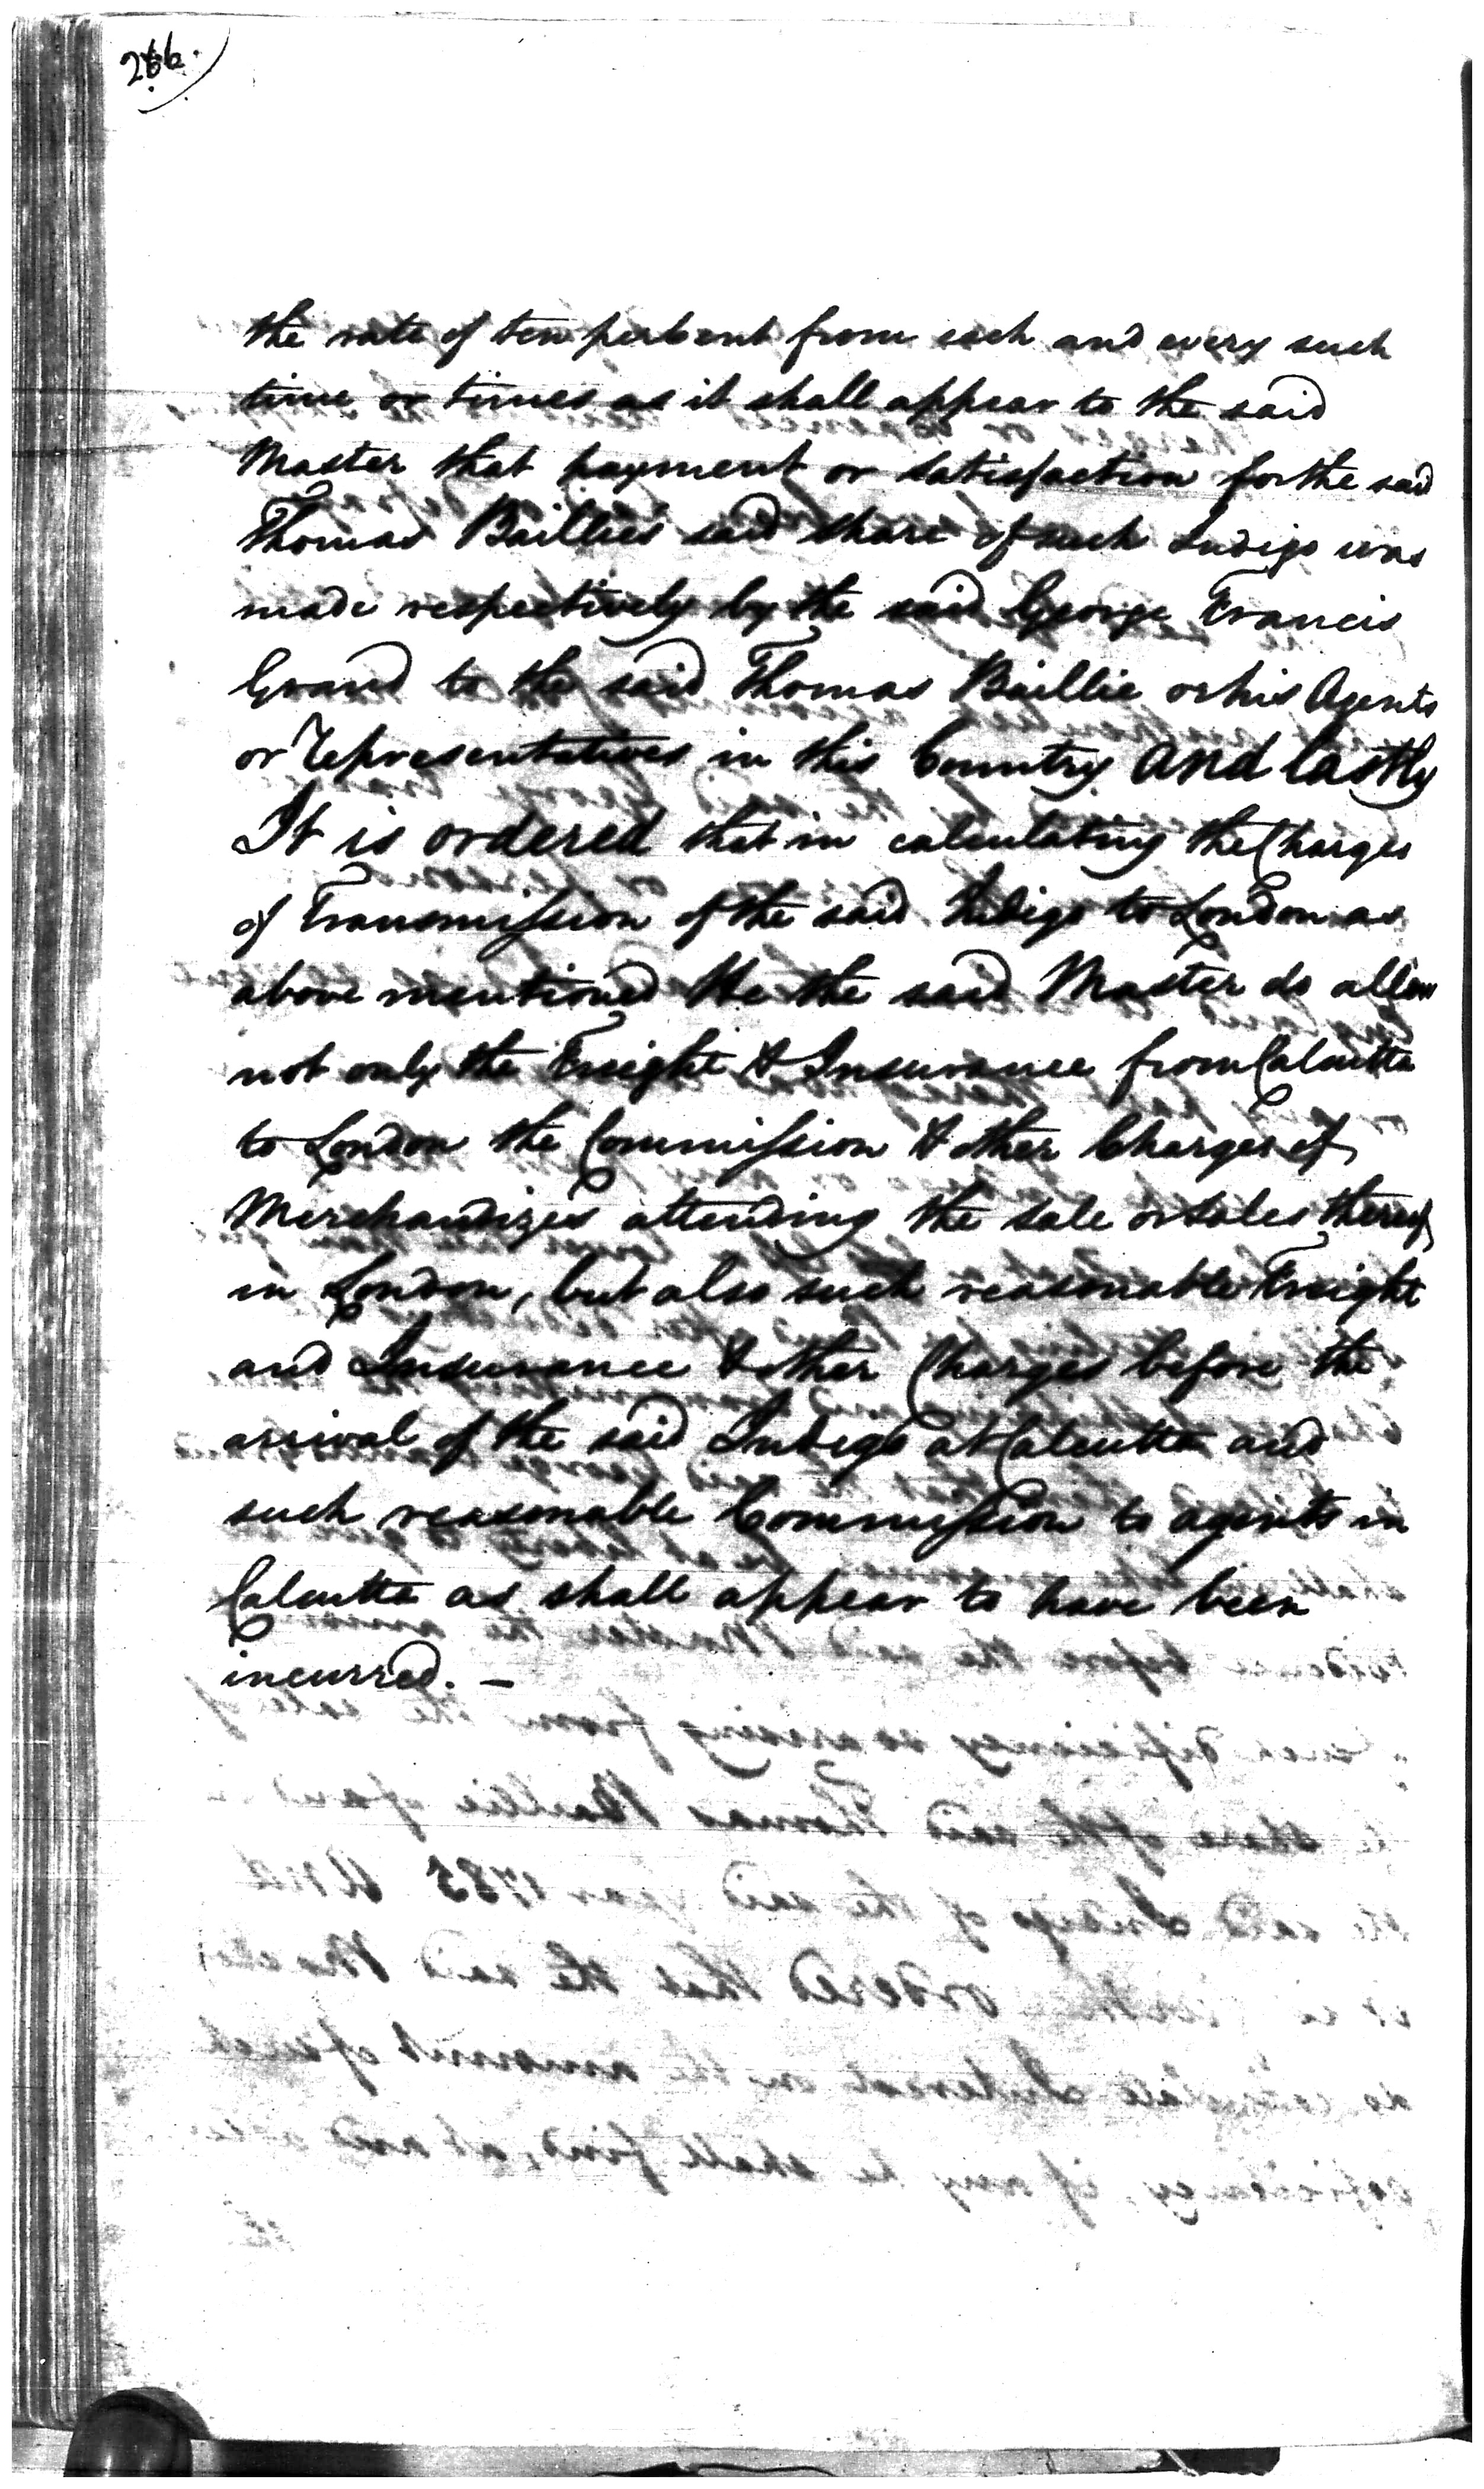 266.
the rate of ten per Cent from each and every such
time or times as it shall appear to the said
Master that payment or satisfaction for the said
Thomas Baillie's said share of such Indigo was
made respectively by the said George Francis
Grand to the said Thomas Baillie or his Agents
or Representatives in this Country And lastly
It is ordered that in calculating the Charges
of Transmission of the said Indigo to London as
above mentioned He the said Master do allow
not only the Freight & Insurance from Calcutta
to London the Commission & other Charges of
Merchandizes attending the sale or sales thereof
in London, but also such reasonable Freight
and Insurance & other Charges before the
arrival of the said Indigo at Calcutta and
such reasonable Commission to agents in
Calcutta as shall appear to have been
incurred. —